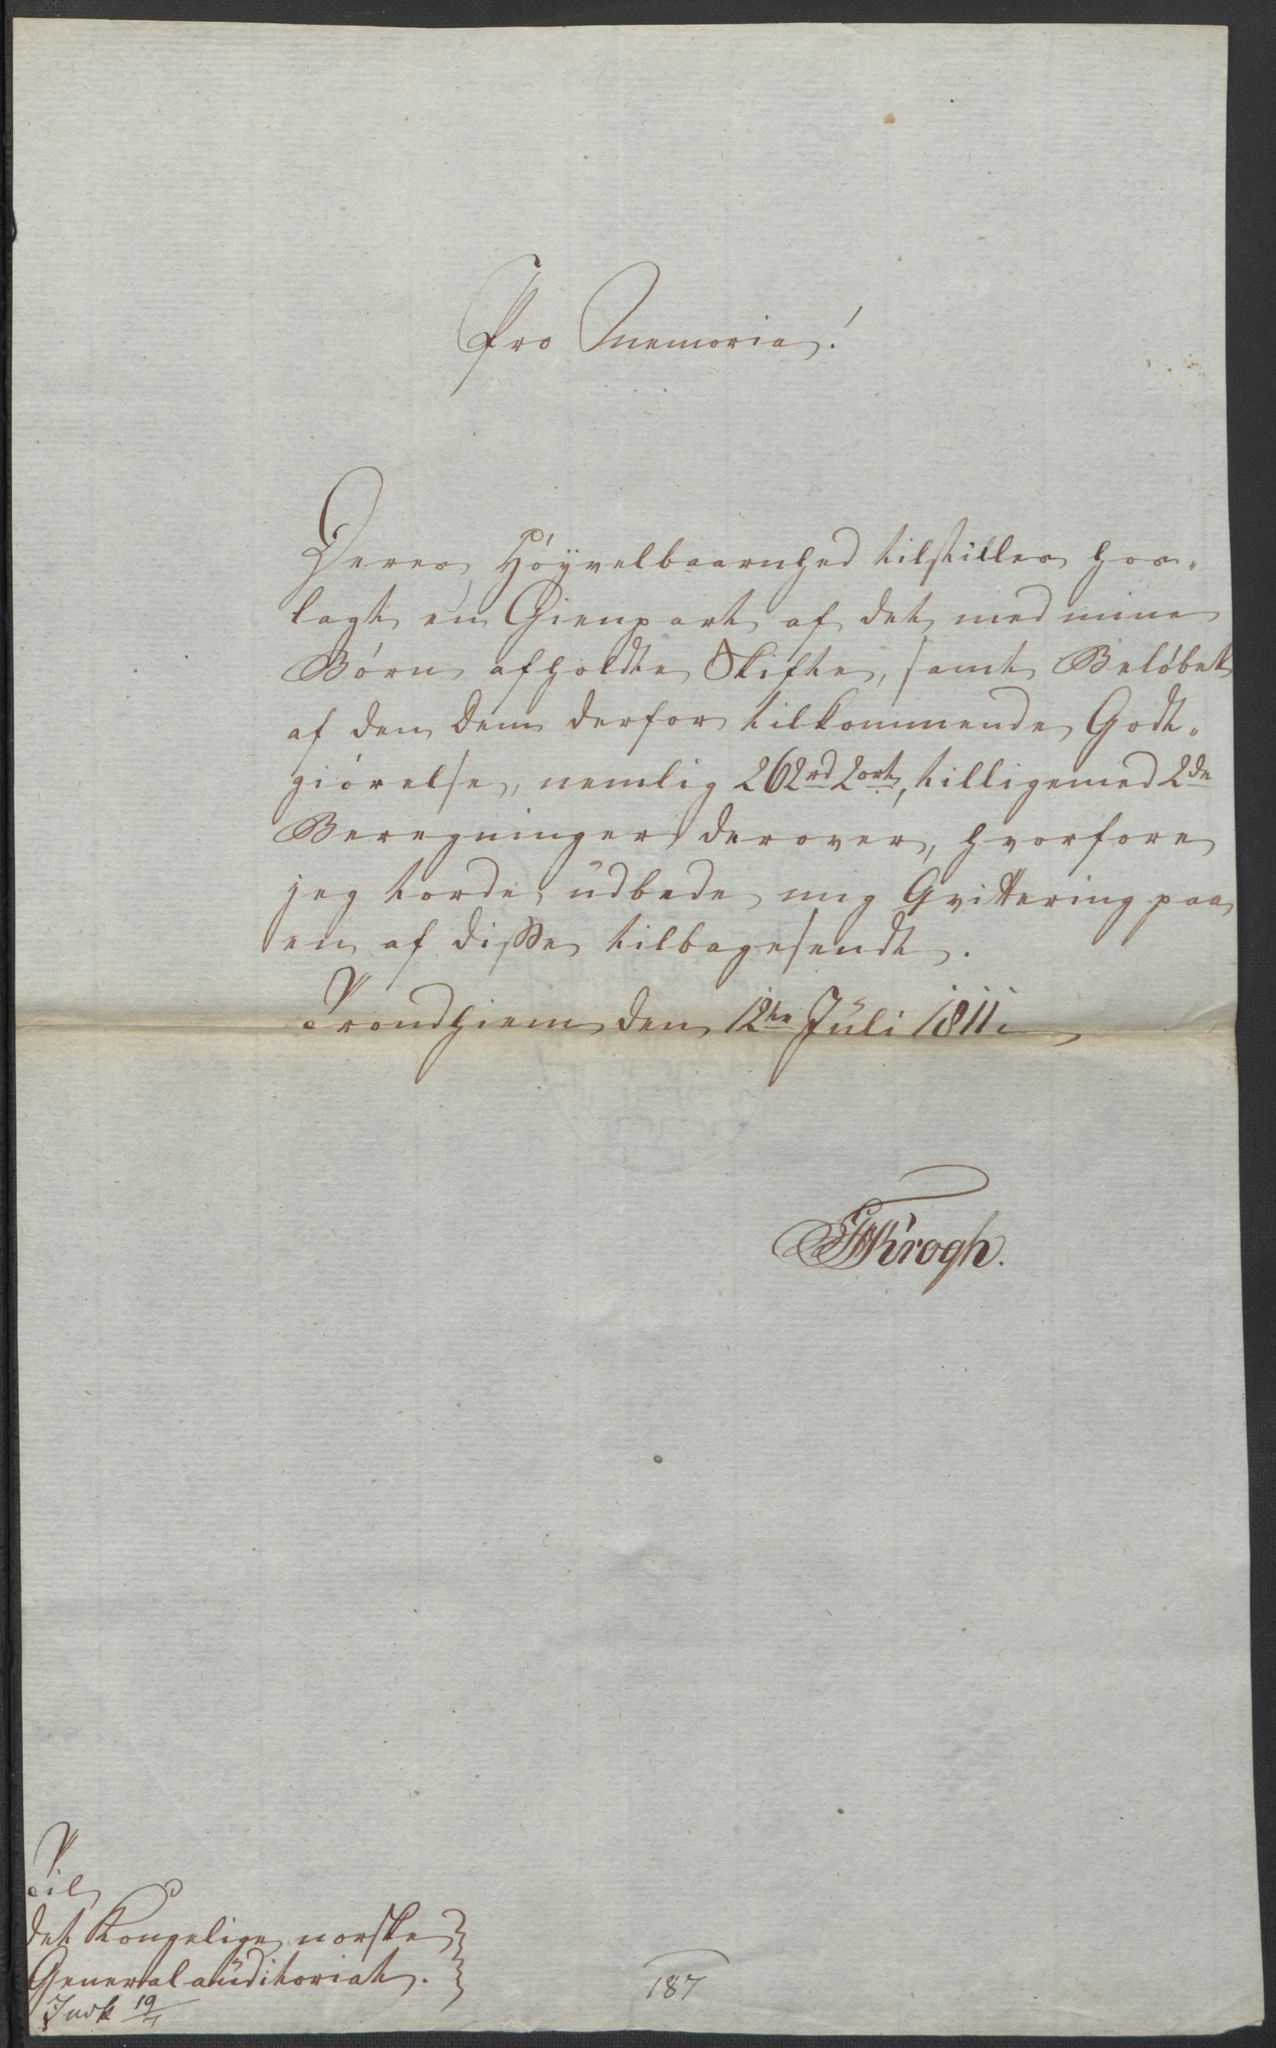 Pro Memoria!
Deres Höÿvelbaarnhed tilstilles hos-
lagt en Gienpart af det med mine
Børn afholdte Skifte, samt Beløbet
af den Dem derfor tilkommende Godt-
giörelse, nemlig 262rd 2ort, tilligemed 2de
Beregninger derover, hvorfore
jeg torde udbede mig Qvittering paa
en af disse tilbagesendt.
Trondhiem den 12te Juli 1811.
Krogh.
Til
det Kongelige norske
Generalauditoriat.
187